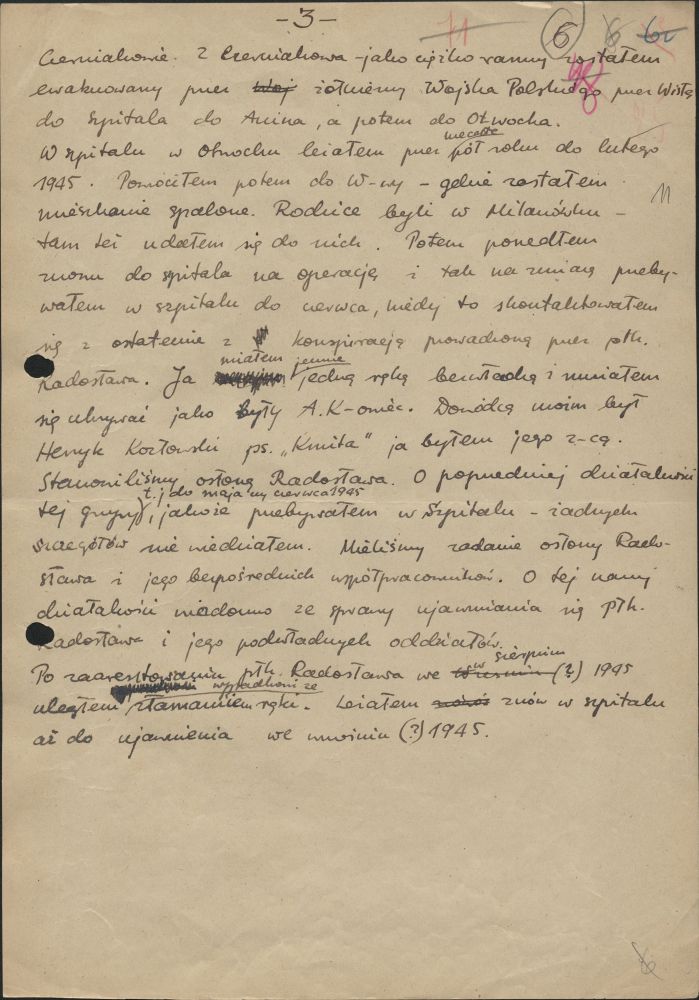 -3-
71 6 6 60
98
Czerniakowie. Z Czerniakowa - jako ciężko ranny zostałem
ewakuowany przez żołnierzy Wojska Polskiego przez Wisłę
do szpitala do Anina, a potem do Otwocka.
niecałe
W szpitalu w Otwocku leżałem przez pół roku do lutego
1945. Powróciłem potem do W-wy - gdzie zastałem
11
mieszkanie spalone. Rodzice byli w Milanówku -
tam też udałem się do nich. Potem poszedłem
znowu do szpitala na operację i tak na zmianę przeby-
wałem w szpitalu do czerwca, kiedy to skontaktowałem
się z ostatnie z konspiracją prowadzoną przez płk.
miałem jeszcze
Radosława. Ja jedną rękę bezwładną i musiałem
się ukrywać jako były A.K-owiec. Dowódcą moim był
Henryk Kozłowski ps. „Kmita" ja byłem jego z-cą.
Stanowiliśmy osłonę Radosława. O poprzedniej działalności
t.j. do maja czy czerwca 1945
tej grupy, jakoże przebywałem w Szpitalu - żadnych
szczegółów nie wiedziałem. Mieliśmy zadanie osłony Rado-
sława i jego bezpośrednich współpracowników. O tej naszej
działalności wiadomo ze sprawy ujawniania się płk.
Radosława i jego podwładnych oddziałów.
w sierpniu
Po zaaresztowaniu płk. Radosława we wrześniu (?) 1945
wypadkowi ze
uległem złamaniem ręki. Leżałem znów w szpitalu
aż do ujawnienia we wrześniu (?) 1945.
6